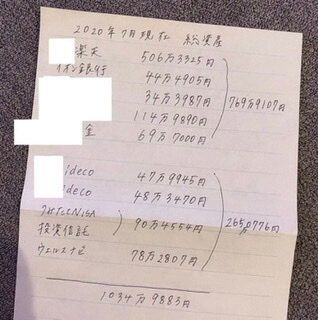 2020年7月現在 総資産
楽天 506万3325円
イオン銀行 44万4905円
34万3987円
114万9890円
769万9107円
金 69万7000円
ideco 47万9945円
ideco 48万3470円
つみたてNISA
投資信託 90万4554円
265万0776円
ウェルスナビ 78万2807円
1034万9883円